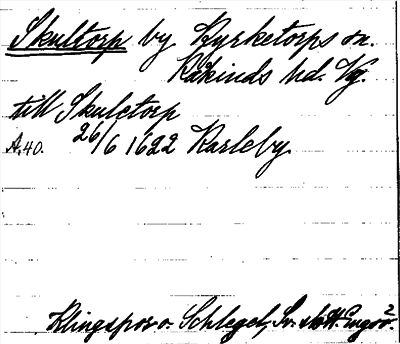 Skultorp by Kyrketorps sn.
Kåkinds hd. Vg.
till Skulctorp
A. 40. 26/6 1622 Karleby.
Klingspor o. Schlegel, Sv. slott